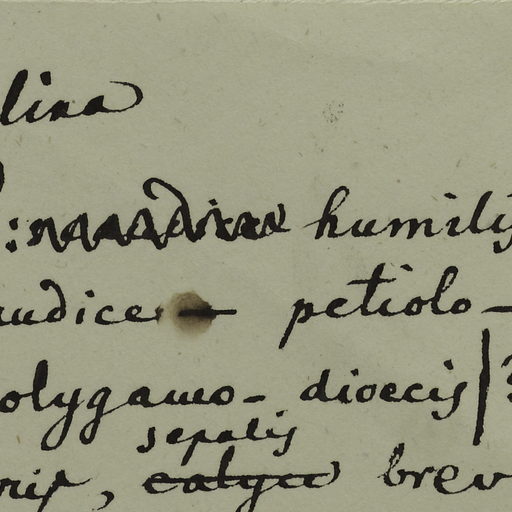 lina
: humilis
audice — petiolo-
olygamo- dioecis | ?
sepalis
rix, calyce brev